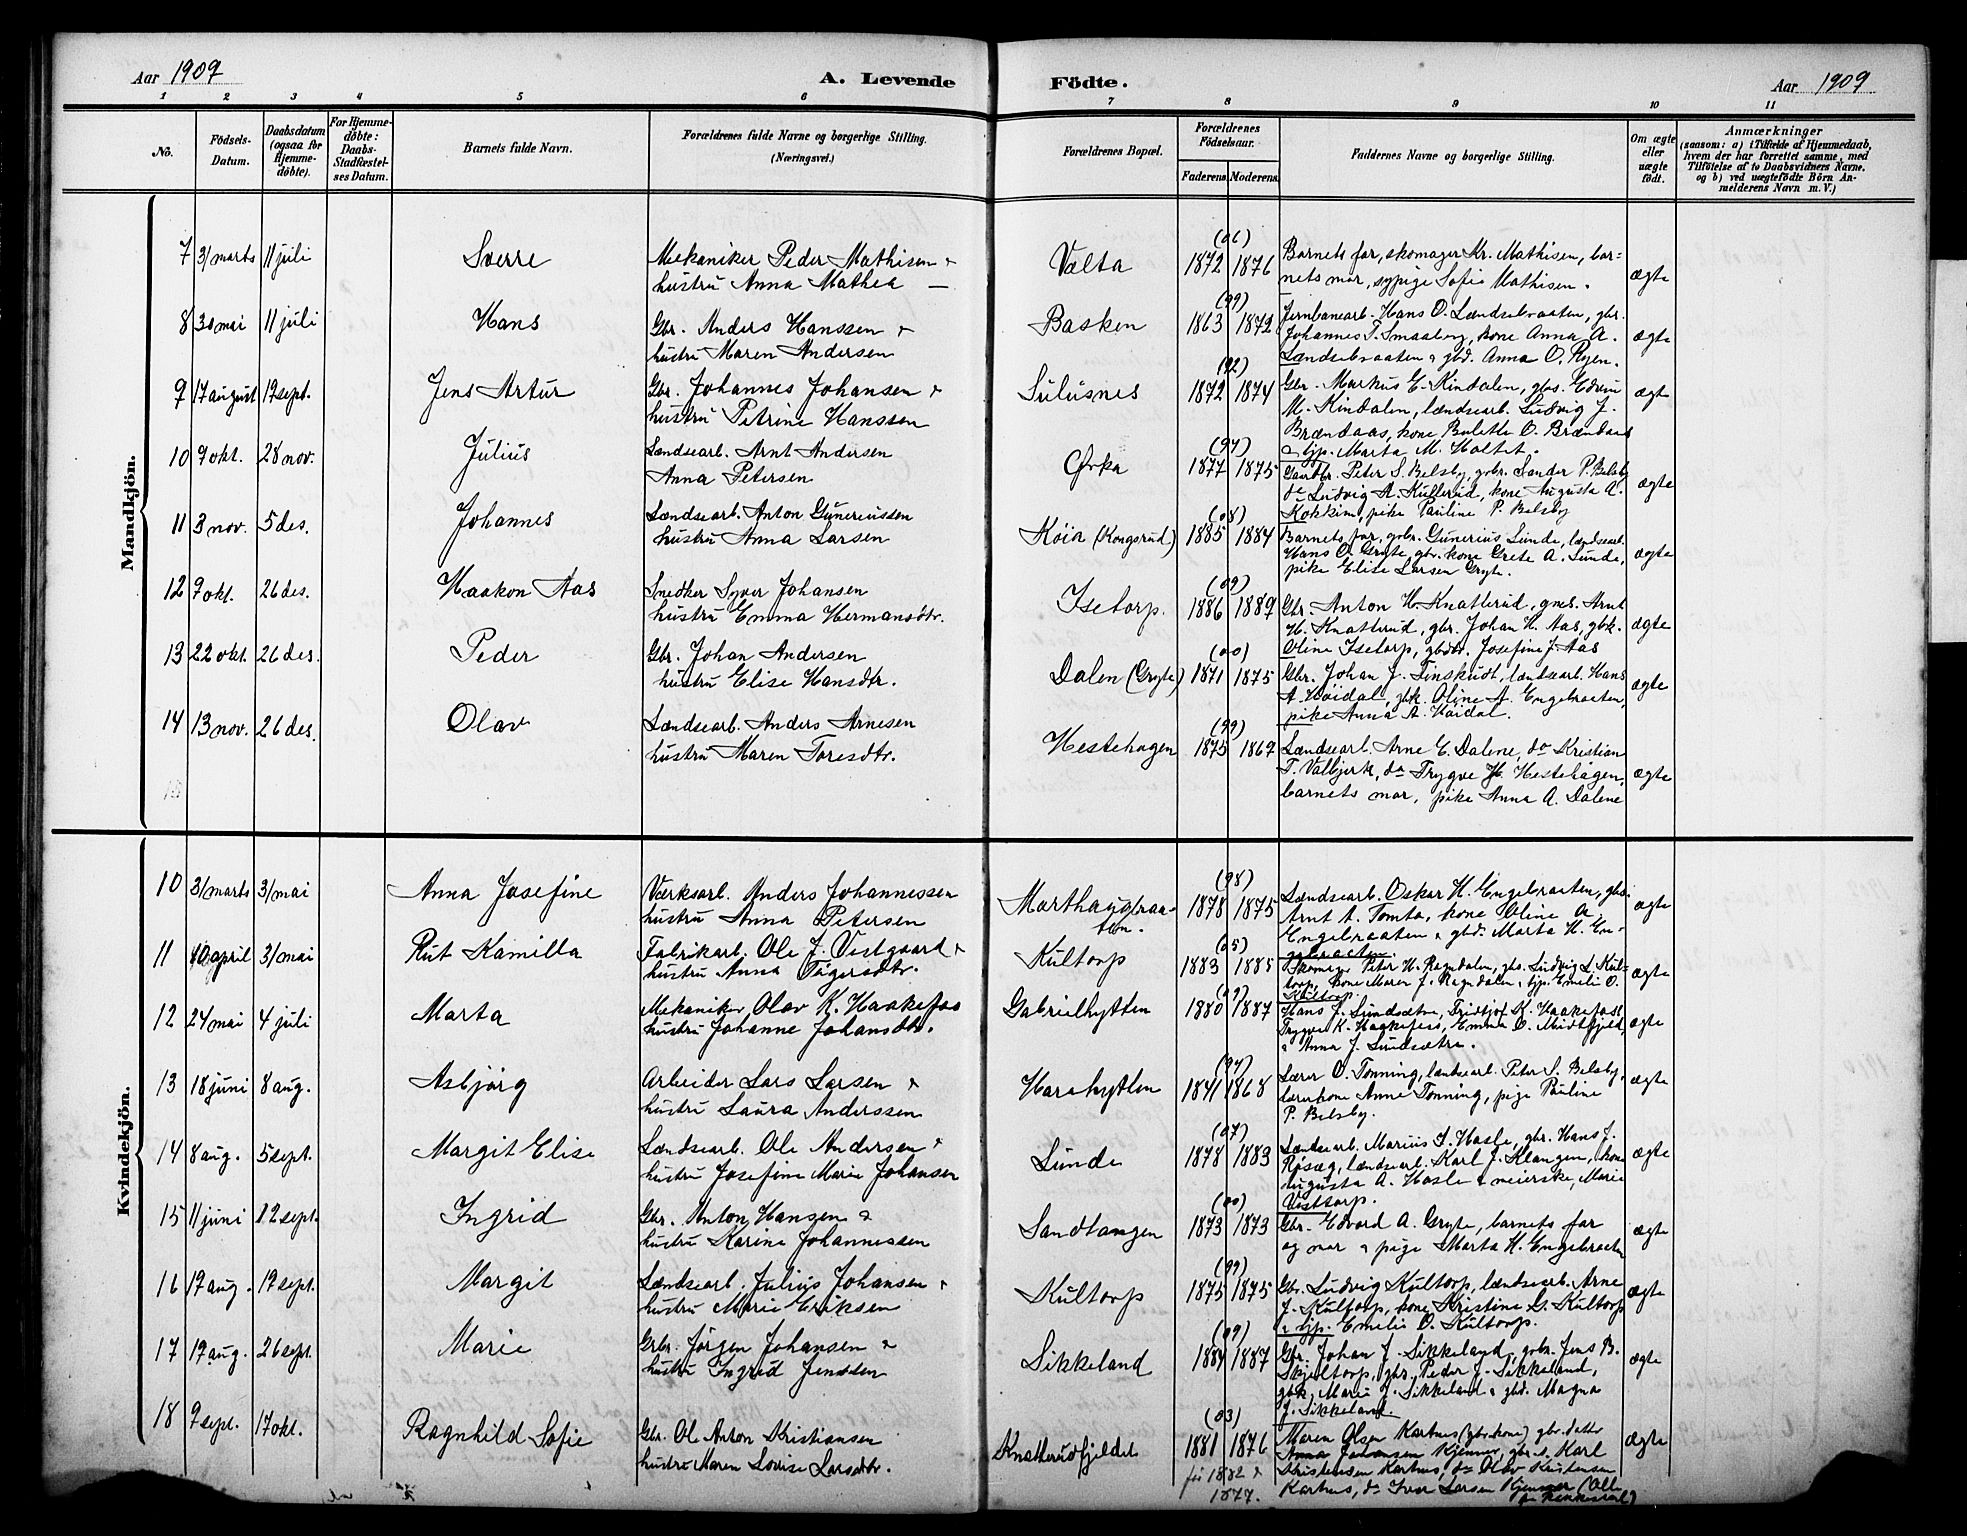 Aar 1909
A. Levende
Födte.
Aar 1909
1 2 3 4 5 6 7 8 9 10 11
No.
Födsels-Datum.
Daabsdatum (ogsaa för Hjemme-döbte).
For Hjemme-döbte: Daabs-Stadfæstel-ses Datum.
Barnets fulde Navn.
Forældrenes fulde Navne og borgerlige Stilling.
(Næringsvei.)
Forældrenes Bopæl.
Forældrenes Födselsaar.
Faderens. Moderens.
Faddernes Navne og borgerlige Stilling.
Om ægte eller uægte födt.
Anmærkninger
(saasom: a) i Tilfælde af Hjemmedaab,
hvem der har forrettet samme, med
Tilföielse af to Daabsvidners Navne.
og b) ved uægtefödte Börn An-
melderens Navn m. V.)
Mandkjön.
7 31 marts 11 juli Sverre Mekaniker Peder Mathisen &
hustru Anna Mathea —
Vælta (06) 1872 1876 Barnets far, skomager Kr. Mathisen, bar=
nets mor, sypige Sofie Mathisen. ægte
8 30 mai 11 juli Hans Gbr. Anders Hanssen &
hustru Maren Andersen
Basken (99) 1863 1872 Jernbanearb. Hans O. Lændsebraaten, gbr.
Johannes T. Smaaberg, kone Anna A.
Lændsebraaten & gbd. Anna O. Ryen. ægte
9 17 august 19 sept. Jens Artur Gbr. Johannes Johansen &
hustru Petrine Hanssen
Sulusnes (92) 1872 1874 Gbr. Markus E. Kindalen, gbs. Edvin
M. Kindalen, lændsearb. Ludvig J.
Brændaas, kone Bolette O. Brændaas
& tjp. Marta M. Holtet. ægt
10 9 okt. 28 nov. Julius Lændsearb. Arnt Andersen
Anna Petersen
Ørka (97) 1877 1875 Gaardbr. Peter S. Belsby, gbr. Sander P. Belsby
do Ludvig A. Kullerud, kone Augusta A.
Kokkim, pike Pauline P. Belsby ægte
11 3 nov. 5 des. Johannes Lændsearb. Anton Gunerius sen
hustru Anna Larsen
Köia (Kongsrud) (08) 1885 1884 Barnets far, gbr. Gunerius Lunde, lændsearb.
Hans O. Gryte, gbr. kone Grete A. Lunde,
pike Elise Larsen Gryte. ægte
12 9 okt. 26 des. Haakon Aas Snedker Syver Johansen
hustru Emma Hermansdtr.
Isetorp. (09) 1886 1889 Gbr. Anton H. Knatterud, gmd. Arnt
H. Knatterud, gbr. Johan H. Aas, gbk.
Oline Isetorp, gbdtr. Josefine J. Aas ægte
13 22 okt. 26 des. Peder Gbr. Johan Andersen
hustru Elise Hansdtr.
Dalen (Gryte) (00) 1871 1875 Gbr. Johan J. Finskudt, lændsearb. Hans
A. Höidal, gbk. Oline A. Engebraaten,
pike Anna A. Höidal. ægte
14 13 nov. 26 des. Olav Lændsearb. Anders Arnesen
hustru Maren Toresdtr.
Hestehagen (99) 1875 1869 Lændsearb. Arne E. Dalene, do Kristian
T. Valbjerk, do Trygve H. Hestehagen,
barnets mor, pike Anna A. Dalene ægte
Kvindekjön.
10 31 marts 31 mai Anna Josefine Værksarb. Anders Johannessen
hustru Anna Petersen
Marthaugbraa-
ten. (98) 1878 1875 Lændsearb. Oskar H. Engebraaten, gbs.
Arnt A. Tomta, kone Oline A.
Engebraaten & gbd. Marta H. En-
gebraaten. ægte
11 10 april 31 mai Rut Kamilla Fabrikarb. Ole J. Vestgaard &
hustru Anna
Kultorp (05) 1883 1885 Skomager Peter H. Rogndalen, gbs. Ludvig L. Kul-
torp, kone Maren J. Rogndalen & tjp. Emelie O.
Kultorp. ægte
12 24 mai 4 juli Marta Mekaniker Olav K. Haakefos
hustru Johanne Johansdtr.
Gabrielhytten 1880 1887 Hans J. Sundsætre, Fridtjof K. Haakefoss
Trygve K. Haakefoss, Emma O. Midtfjeld,
& Anna J. Sundsætre. ægte
13 18 juni 8 aug. Asbjörg Arbeider Lars Larsen &
hustru Laura Anderssen
Harehytten (94) 1841 1868 Lærer O. Tönning, lændsearb. Peter S. Belsby,
lærerkone Anne Tönning, pige Pauline
P. Belsby. ægte
14 8 aug. 5 sept. Margit Elise Lændsearb. Ole Andersen &
hustru Josefine Marie Johansen
Lunde (07) 1878 1883 Lændsearb. Marius A. Hasle, gbr. Hans J.
Rösæg, lændsearb. Karl J. Klangen, kone
Augusta A. Hasle & meierske, Marie
Visttorp. ægte
15 11 juni 12 sept. Ingrid Gbr. Anton Hansen &
hustru Karine Johannessen
Sandtangen (00) 1873 1873 Gbr. Edvard A. Gryte, barnets far
og mor & pige Marta H. Engebraaten ægte
16 17 aug. 19 sept. Margit Lændsearb. Julius Johansen &
hustru Marie Eriksen
Kultorp (99) 1875 1875 Gbr. Ludvig Kultorp, lændsearb. Arne
J. Kultorp, kone Kristine L. Kultorp
& tjp. Emelie O. Kultorp. ægte
17 19 aug. 26 sept. Marie Gbr. Jörgen Johansen &
hustru Ingrid Jenssen
Sikkeland (09) 1884 1887 Gbr. Johan J. Sikkeland, gbr. Jens B.
Skjeltorp, gbr. Peder J. Sikkeland,
gbk. Marie J. Sikkeland & gbd. Magna
J. Sikkeland. ægte
18 9 sept. 17 okt. Ragnhild Sofie Gbr. Ole Anton Kristiansen
hustru Maren Lovise Larsdtr.
Knatterudfjeldet (03) 1881 1876 Maren Olsen Karthus (gbr. kone) gbr. datter
Anna Johansen Kjenner, gbr. s. Karl
Kristensen Karthus, do Olav Kristensen
Karthus, do Ivar Larsen Kjenner (Alle ægte
før 1882 &
1877.